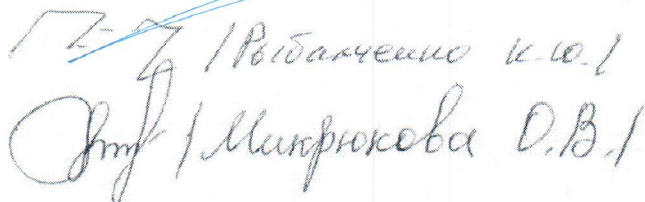 /Рыбалченко К.Ю./
/Микрюкова О.В./